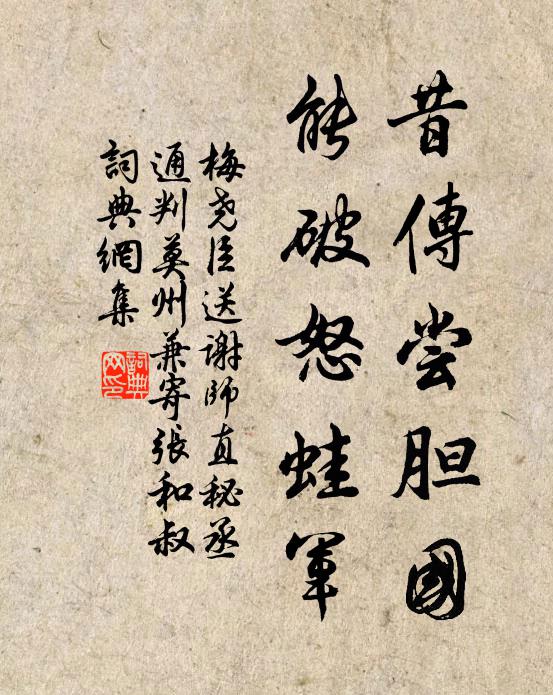 昔傳嘗胆國
能破怒蛙軍
梅尧臣送谢師直秘丞
通判莫州兼寄張和叔
詞典網集
詞典网印